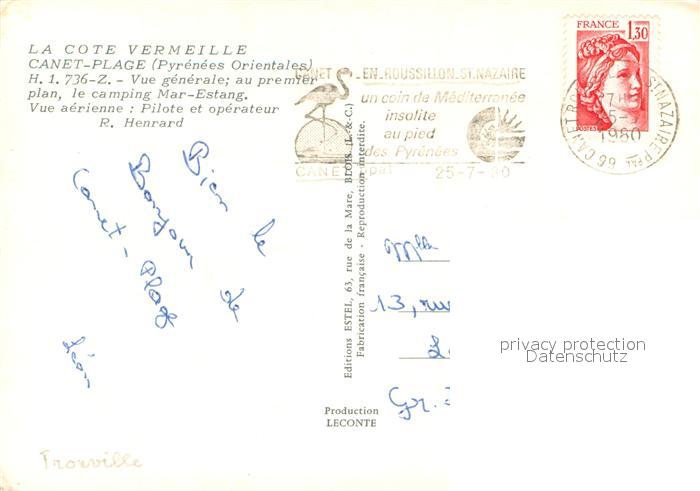 LA COTE VERMEILLE
CANET-PLAGE (Pyrénées Orientales)
H. 1. 736-Z. - Vue générale; au premier
plan, le camping Mar-Estang.
Vue aérienne : Pilote et opérateur
R. Henrard
CANET-EN-ROUSSILLON-ST-NAZAIRE
un coin de Méditerranée
insolite
au pied
des Pyrénées
CANET Ppal 25-7-80
FRANCE
1,30
POSTES
66 CANET ROUSSILLON ST NAZAIRE PPAL
1980
Bien le
Bonjour de
Canet-Plage
Editions ESTEL, 63, rue de la Mare, BLOIS (L.-&-C.)
Fabrication française - Reproduction interdite.
13, rue
Production
LECONTE
privacy protection
Datenschutz
Trouville